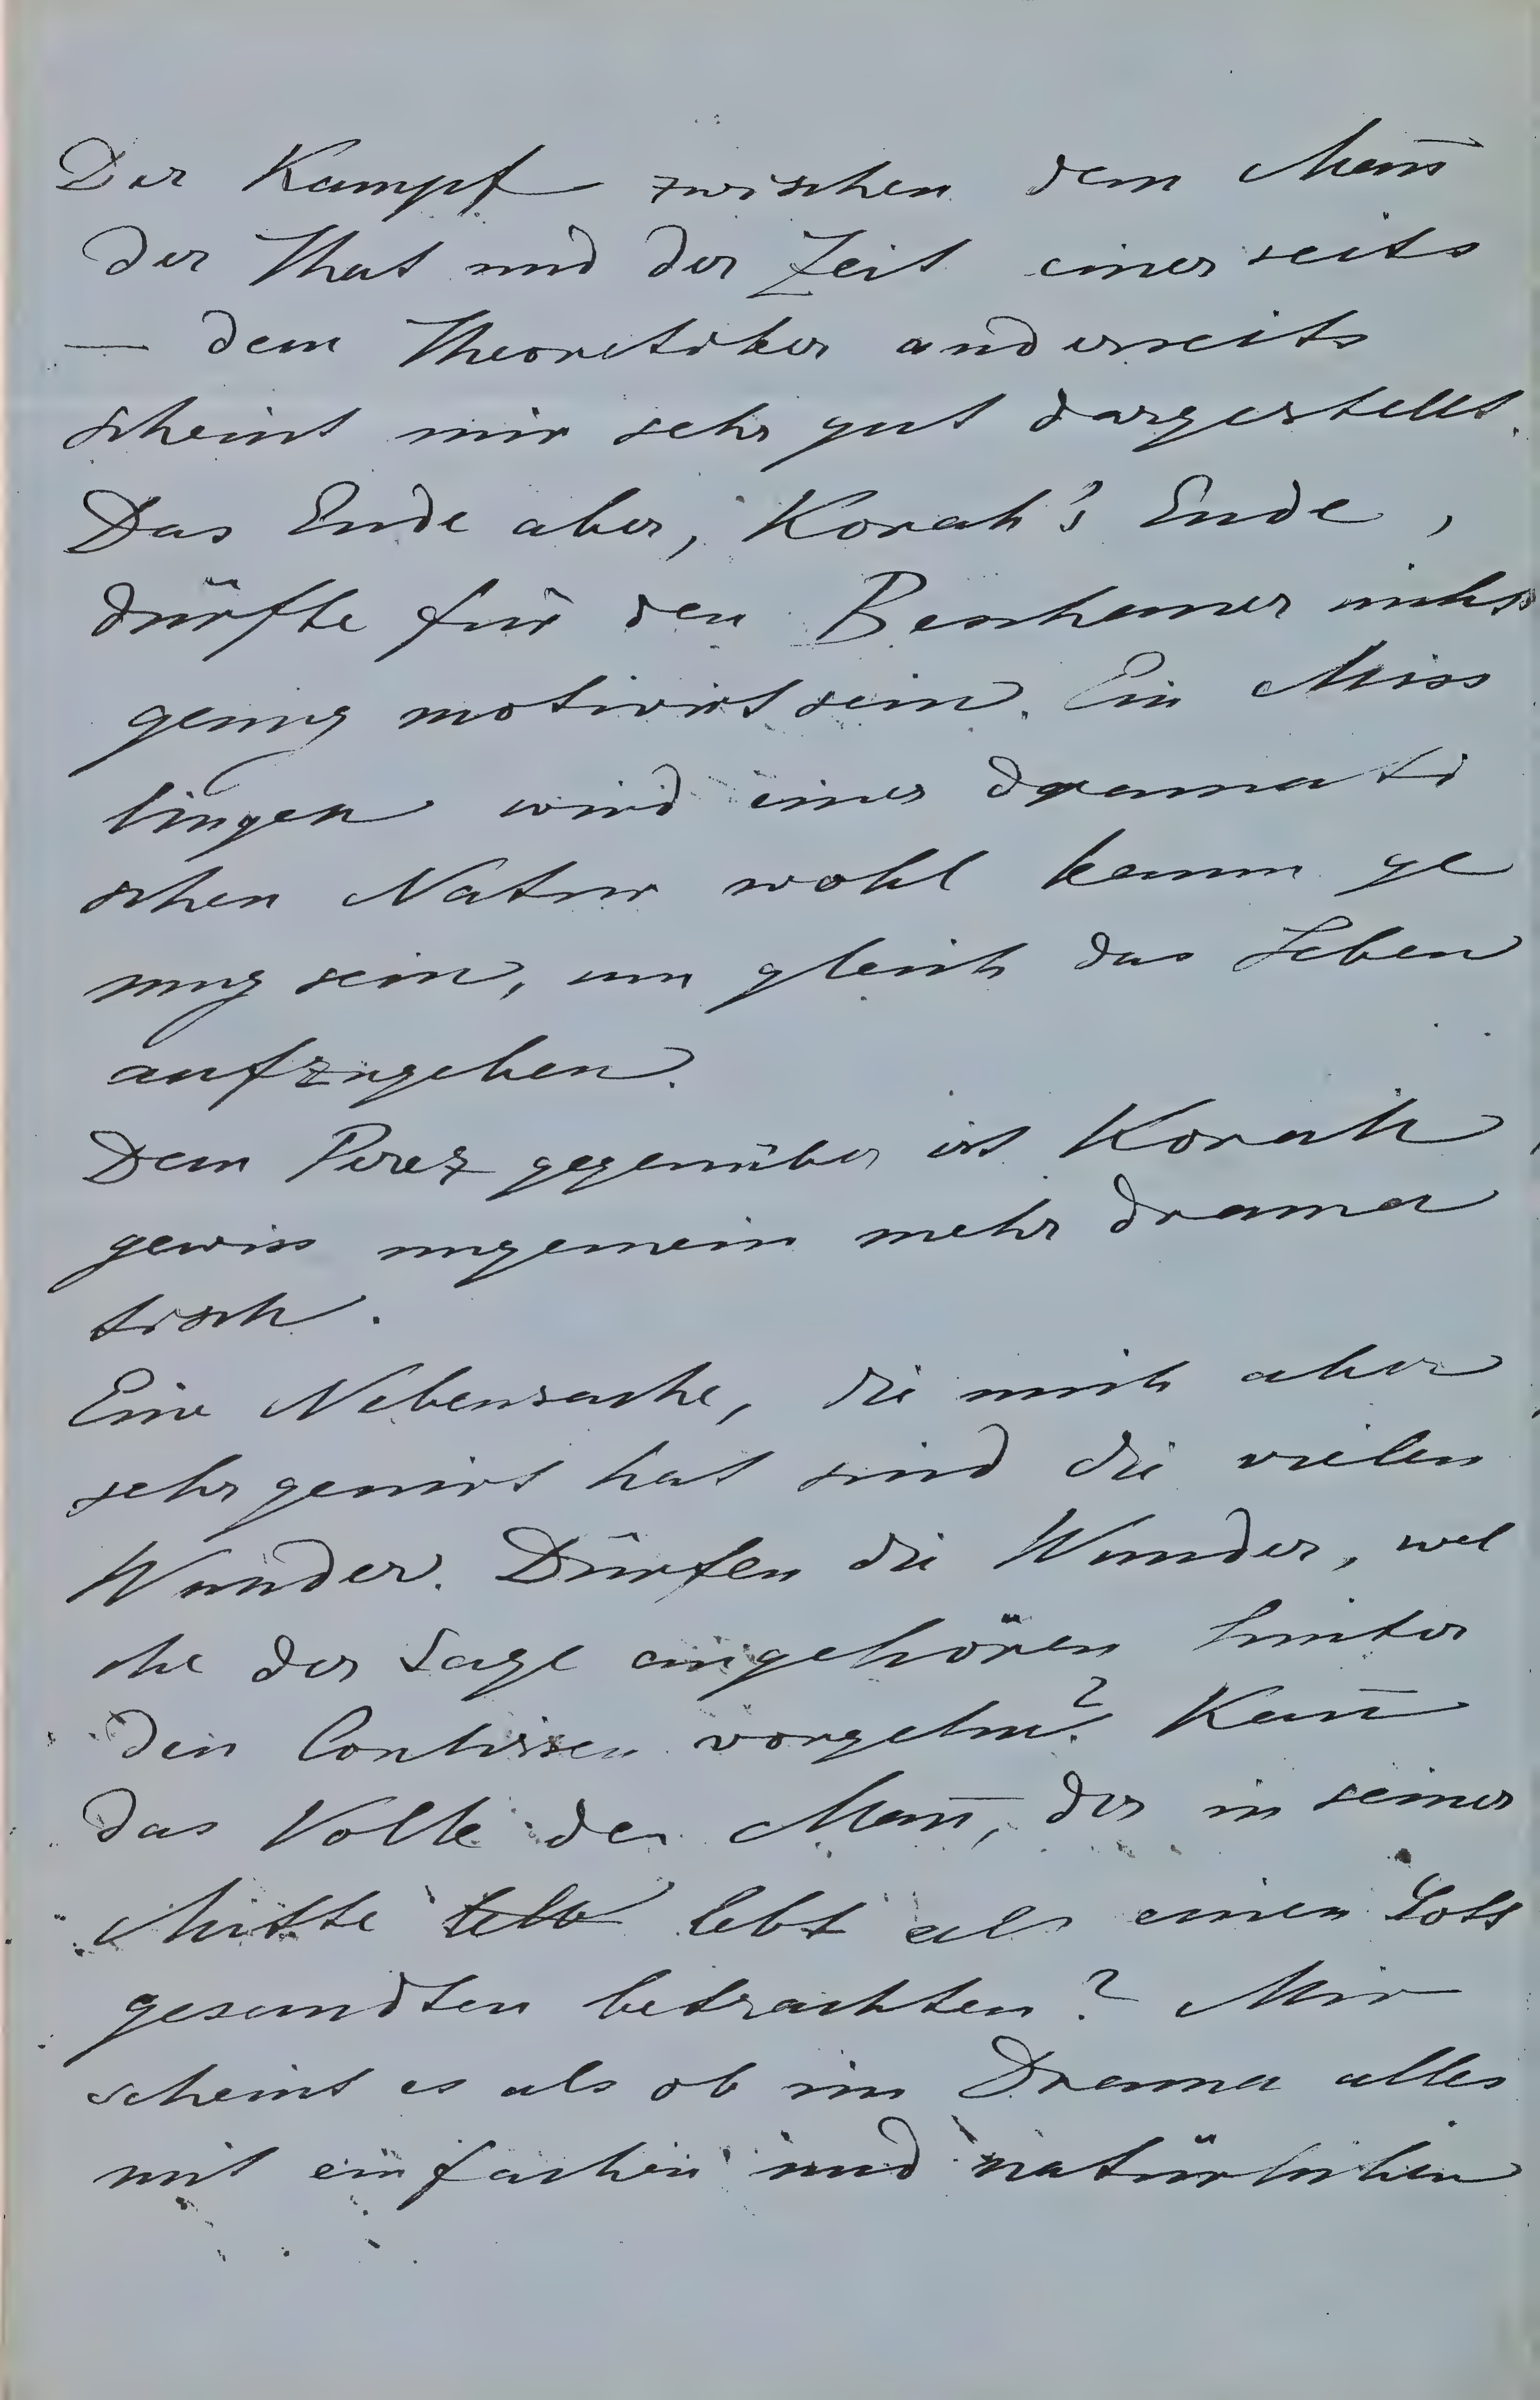 Der Kampf zwischen dem Man̄
der That und der Zeit einerseits
— dem Theoretiker anderseits
scheint mir sehr gut dargestellt.
Das Ende aber, Korah's Ende,
dürfte für den Beschauer nicht
genug motivirt sein. Ein Miss
lingen wird einer dramati
schen Natur wohl kaum ge
nug sein, um gleich das Leben
aufzugeben.
Dem Perez gegenüber ist Korah
gewiss ungemein mehr drama
tisch.
Eine Nebensache, die mich aber
sehr genirt hat sind die vielen
Wunder. Dürfen die Wunder, wel
che der Sage angehören hinter
den Coulissen vorgehn? Kan̄
das Volk den Man̄, der in seiner
Mitte lebt als einen Gott
gesandten betrachten? Mir
scheint es als ob im Drama alles
mit einfachen und natürlichen